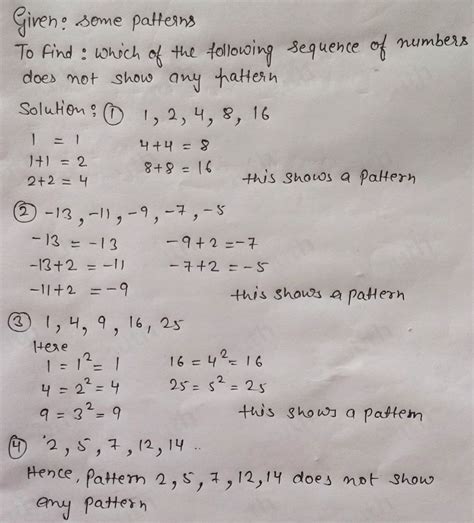 Given: some patterns
To find: which of the following sequence of numbers
does not show any pattern
Solution: ① 1, 2, 4, 8, 16
1 = 1 4+4 = 8
1+1 = 2 8+8 = 16
2+2 = 4 this shows a pattern
② -13, -11, -9, -7, -5
-13 = -13 -9+2 = -7
-13+2 = -11 -7+2 = -5
-11+2 = -9 this shows a pattern
③ 1, 4, 9, 16, 25
Here
1 = 1² = 1 16 = 4² = 16
4 = 2² = 4 25 = 5² = 25
9 = 3² = 9 this shows a pattern
④ 2, 5, 7, 12, 14 ..
Hence, Pattern 2, 5, 7, 12, 14 does not show
any pattern